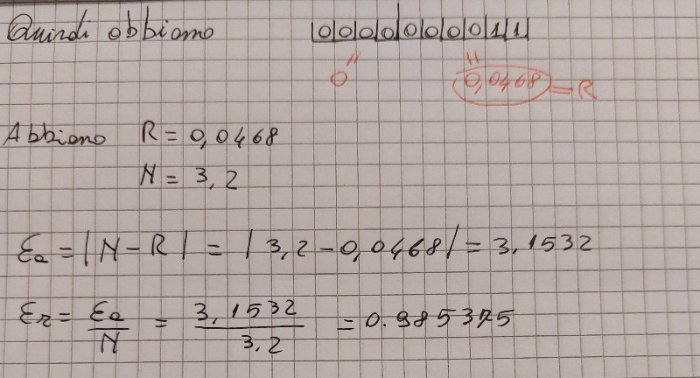 Quindi abbiamo |0|0|0|0|0|0|0|0|1|1|
0" "0,0468 = R
Abbiamo R = 0,0468
N = 3,2
εa = |N-R| = |3,2-0,0468| = 3,1532
εr = εa/N = 3,1532/3,2 = 0.985375